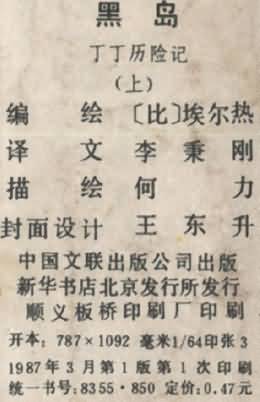 黑岛
丁丁历险记
(上)
编 绘 〔比〕埃尔热
译 文 李秉刚
描 绘 何 力
封面设计 王东升
中国文联出版公司出版
新华书店北京发行所发行
顺义板桥印刷厂印刷
开本：787×1092 毫米1/64印张3
1987年3月第1版第1次印刷
统一书号：8355·850 定价：0.47元